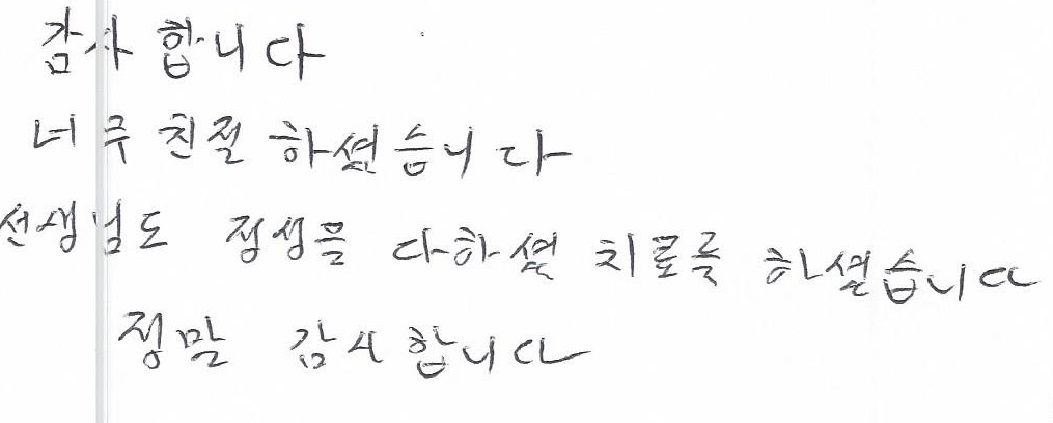 감사합니다
너무 친절하셨습니다
선생님도 정성을 다하셨 치료를 하셨습니다
정말 감사합니다